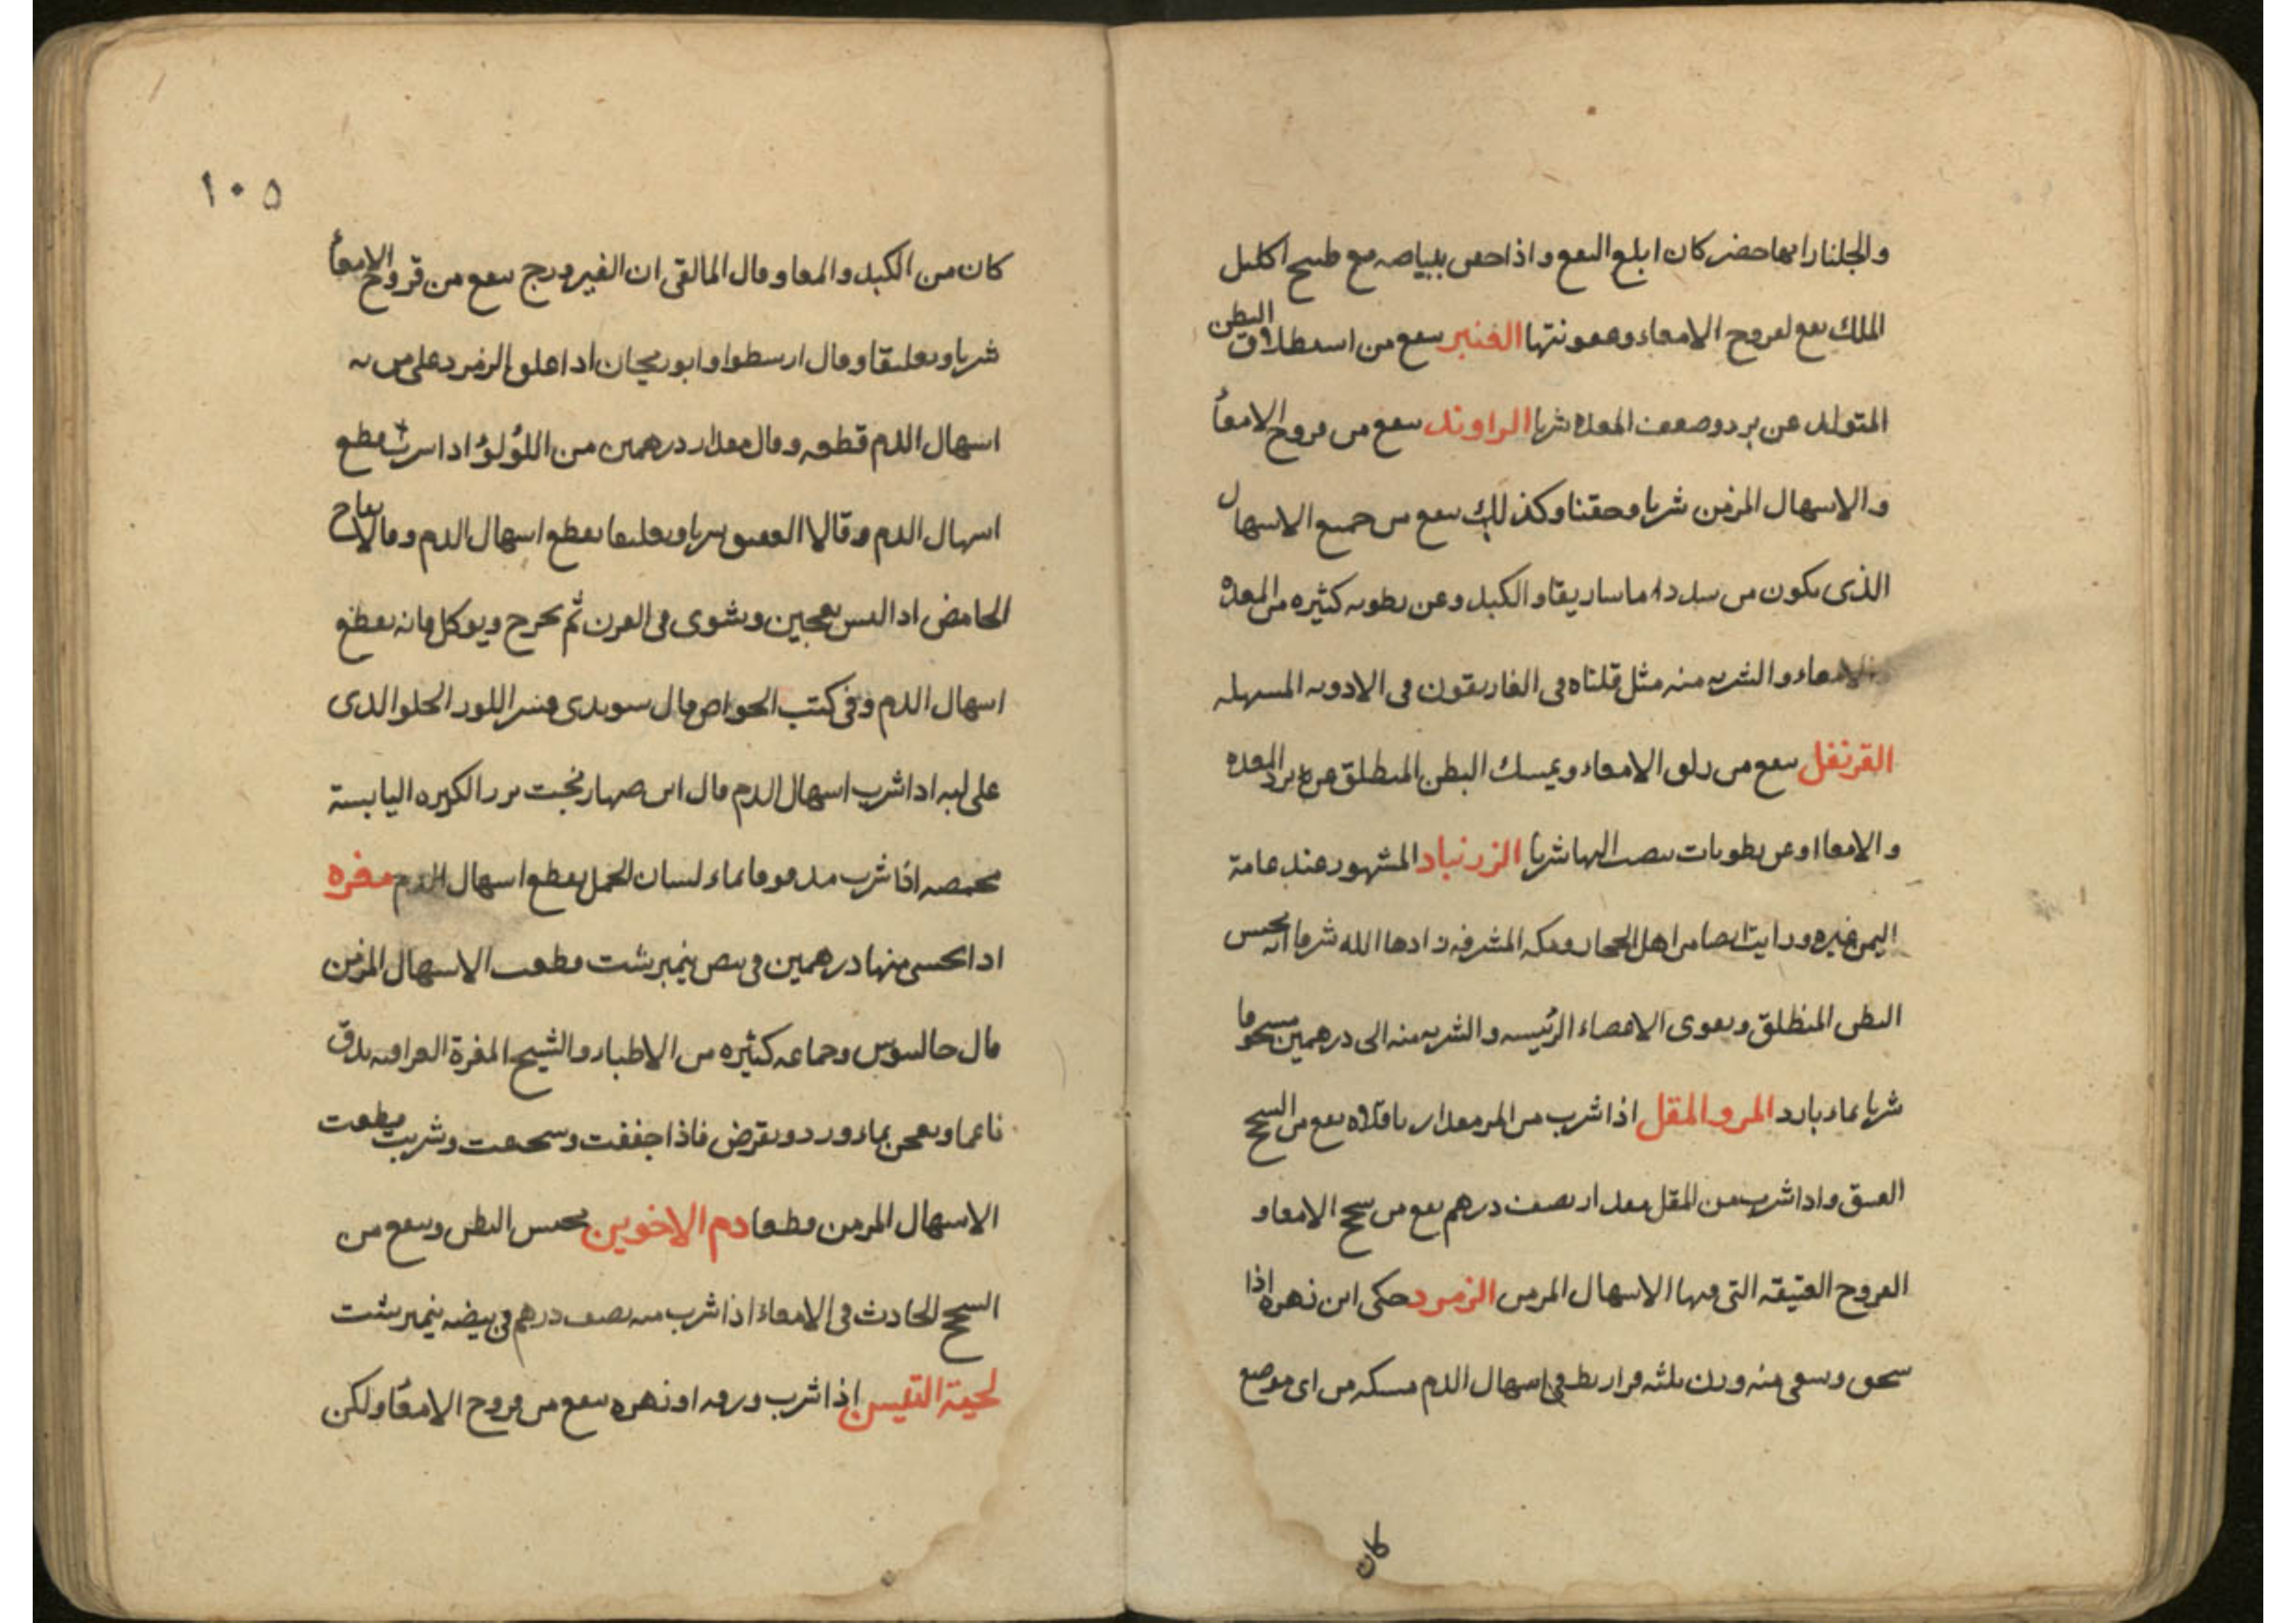 والجلنار ايها حضر كان ابلغ النفع واذا حقن ببياضه مع طبيخ اكليل
الملك نفع لقروح الامعاء وعفونتها الفنبر ينفع من استطلاق البطن
المتولد عن برد وضعف المعدة شربا الراوند ينفع من قروح الامعأ
والاسهال المزمن شربا وحقنا وكذلك ينفع من جميع الاسهال
الذى يكون من سدد اماساريقا والكبد وعن رطوبه كثيره من المعدة
والامعاء والشربه منه مثل قلناه فى الغاريقون فى الادويه المسهله
القرنفل ينفع من زلق الامعاء ويمسك البطن المنطلق عن برد المعده
والامعا او عن رطوبات تنصب اليها شربا الزرنباد المشهور عند عامة
اليمن ورايت ايضا من اهل الحجاز ومكه المشرفه زادها الله شرفا انه يحبس
البطن المنطلق ويقوى الاعضاء الرئيسه والشربه منه الى درهمين مسحوقا
شربا بماء بارد المر والمقل اذا شرب من المر مقدار باقلاه نفع من السحج
العتيق واذا شرب من المقل مقدار نصف درهم نفع من سحج الامعا و
القروح العتيقه التى فيها الاسهال المزمن الزمرد حكى ابن زهر اذا
سحق وسقى منه وزن ثلثه قراريط فى اسهال الدم مسكه من اى موضع
كان
١٠٥
كان من الكبد والمعا وقال المالقى ان الفيروزج ينفع من قروح الامعأ
شربا وتعليقا وقال ارسطوا وابوريحان اذا علق الزمرد على من به
اسهال الدم قطعه وقال مقدار درهمين من اللؤلؤ اذا شربت قطع
اسهال الدم وقالا العقيق شربا وتعليقا يقطع اسهال الدم وقالا التفاح
الحامض اذا البس بعجين وشوى فى الفرن ثم يخرج ويوكل فانه يقطع
اسهال الدم وفى كتب الخواص قال سويدى قشر اللوز الحلو الذى
على لبه اذا شرب اسهال الدم قال ابن صهاربخت بزر الكزبره اليابسة
محمصه اذا شرب مدقوقا بماء لسان الحمل يقطع اسهال الدم مغره
اذا تحسى منها درهمين فى بيض نيمبرشت قطعت الاسهال المزمن
قال جالينوس وجماعه كثيره من الاطباء والشيخ المغرة العراقيه تدق
ناعما وتعجن بماء ورد وتقرض فاذا جففت وسحقت وشربت قطعت
الاسهال المزمن قطعا دم الاخوين يحبس البطن وينفع من
السحج الحادث فى الامعاء اذا شرب منه نصف درهم فى بيضه نيمبرشت
لحية التيس اذا شرب ورقه او زهره ينفع من قروح الامعأ ولكن